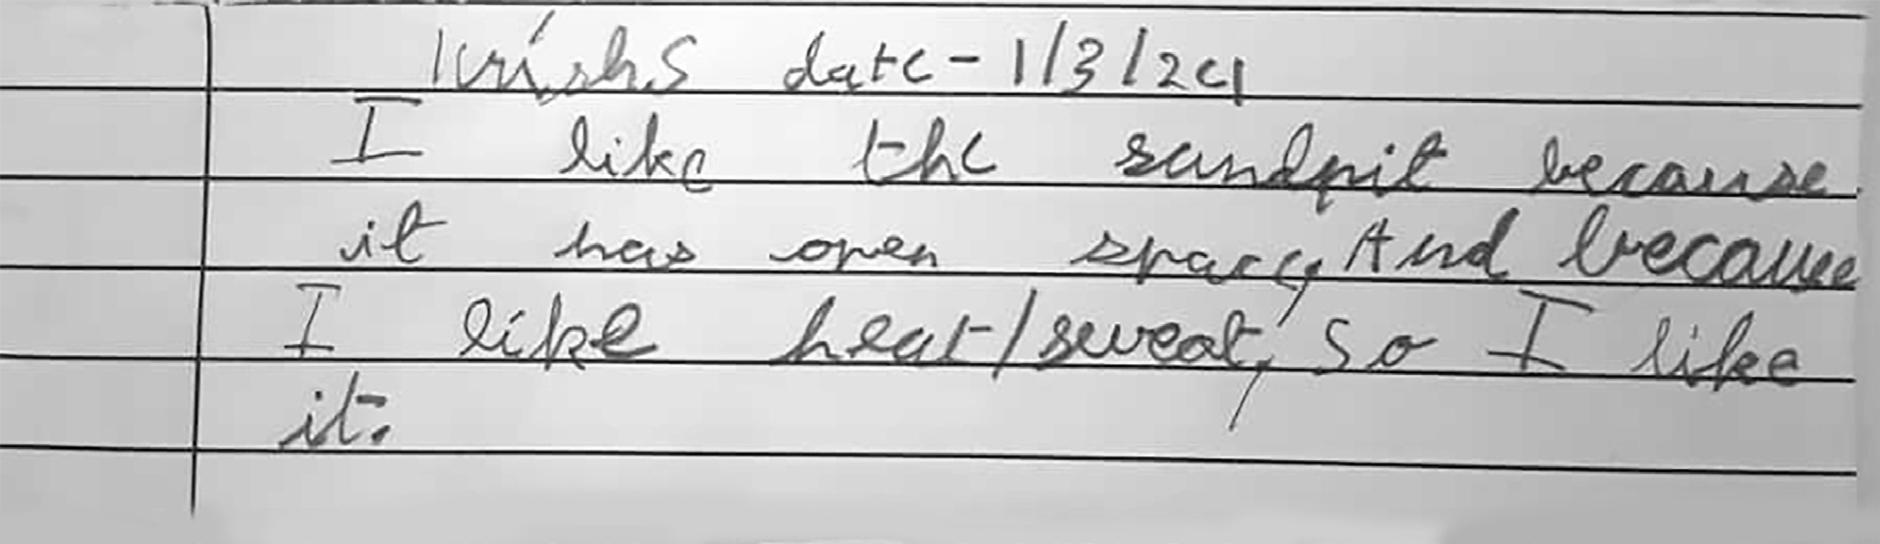 Krish.S date - 1/3/24
I like the sandpit because
it has open space, And because
I like heat/sweat, so I like
it.